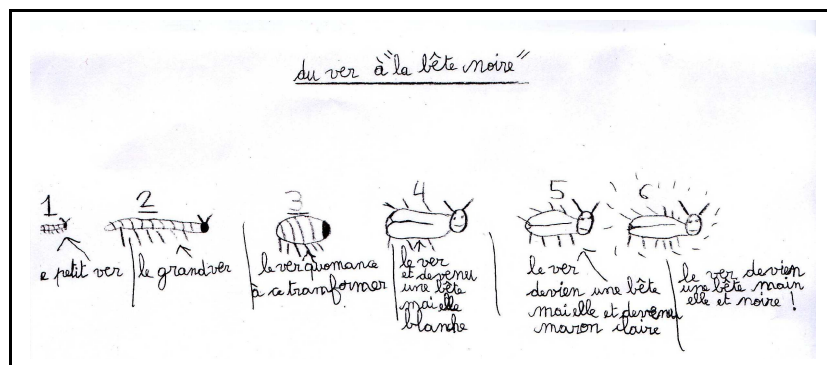 du ver à "la bête noire"
1
2
3
4
5
6
e petit ver
le grand ver
le ver quomance
à ce tranformer
le ver
et devenu
une bête
mai elle
blanche
le ver
devien une bête
mai elle et devenu
maron claire
le ver devien
une bête main
elle et noire !